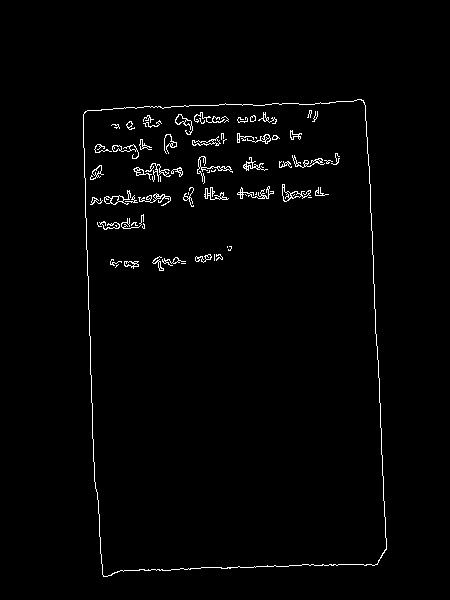 the system works
enough for most
suffers from the inherent
weakness of the trust based
model
qua non"